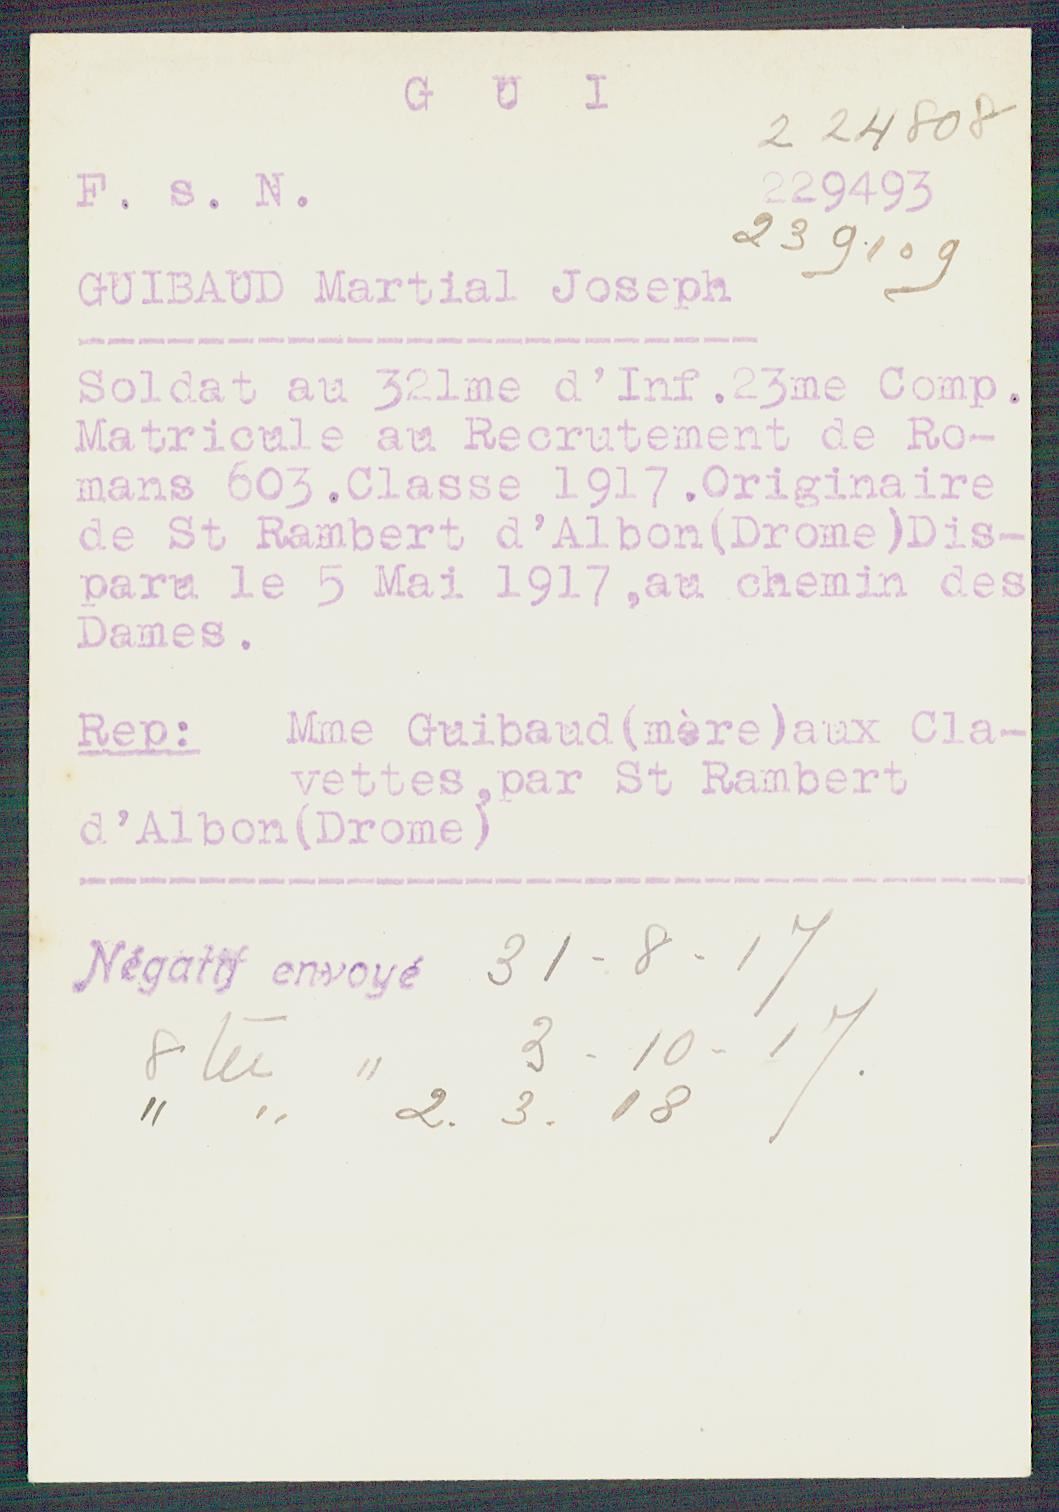 G U I
2 24808
F. s. N. 229493
239109
GUIBAUD Martial Joseph
Soldat au 321me d'Inf.23me Comp.
Matricule au Recrutement de Ro-
mans 603.Classe 1917.Originaire
de St Rambert d'Albon(Drome)Dis-
paru le 5 Mai 1917,au chemin des
Dames.
Rep: Mme Guibaud(mère)aux Cla-
vettes,par St Rambert
d'Albon(Drome)
Négatif envoyé 31-8-17
" 3-10-17.
" " 2.3.18